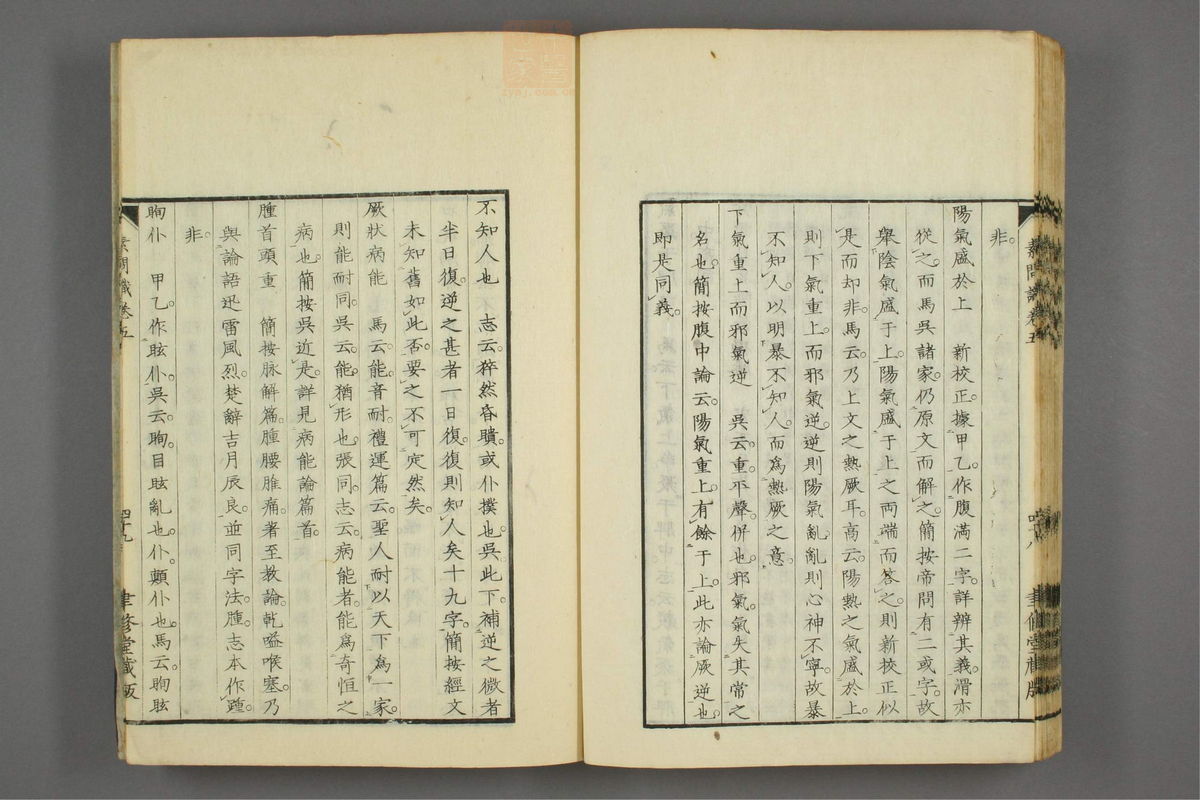 非。
陽氣盛於上　新挍正。據甲乙。作腹滿二字。詳辨其義。滑亦
從之。而馬吳諸家。仍原文而解之。簡按帝問有二或字。故
舉陰氣盛于上。陽氣盛于上之兩端而答之。則新挍正似
是而却非。馬云。乃上文之熱厥耳。高云。陽熱之氣盛於上。
則下氣重上。而邪氣逆。逆則陽氣亂。亂則心神不寧。故暴
不知人。以明暴不知人。而爲熱厥之意。
下氣重上而邪氣逆　吳云。重。平聲。併也。邪氣。氣失其常之
名也。簡按腹中論云。陽氣重上。有餘于上。此亦論厥逆也。
即是同義。
素問識卷五　四十八　聿修堂藏版
不知人也　志云。猝然昏聵。或仆撲也。吳此下補逆之微者
半日復。逆之甚者一日復。復則知人矣十九字。簡按經文
未知舊如此否。要之不可定然矣。
厥狀病能　馬云。能。音耐。禮運篇云。聖人耐以天下爲一家。
則能耐同。吳云。能。猶形也。張同。志云。病能者。能爲奇恒之
病也。簡按吳近是。詳見病能論篇首。
腫首頭重　簡按脉解篇。腫腰脽痛。著至教論。乾嗌喉塞。乃
與論語迅雷風烈。楚辭吉月辰良。並同字法。腫。志本作踵。
非。
眴仆　甲乙。作眩仆。吳云。眴。目眩亂也。仆。顛仆也。馬云。眴眩
素問識卷五　四十九　聿修堂藏版
zynj.com.cn